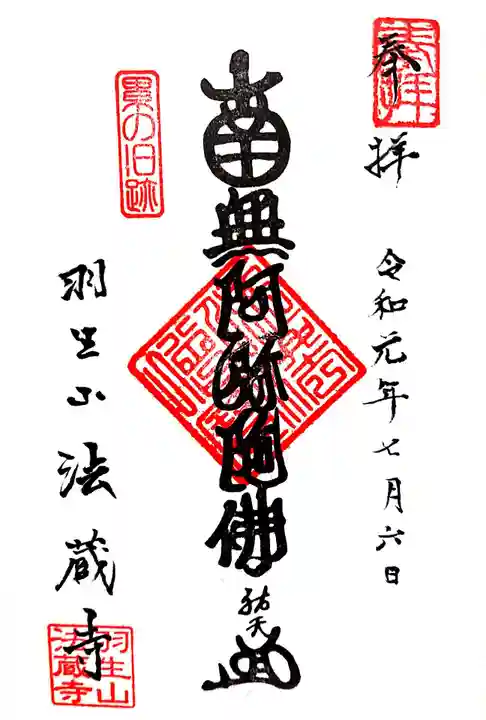 奉拝
令和元年七月六日
南無阿弥陀佛
祐天
累の旧跡
羽生山法蔵寺
羽生山
法蔵寺